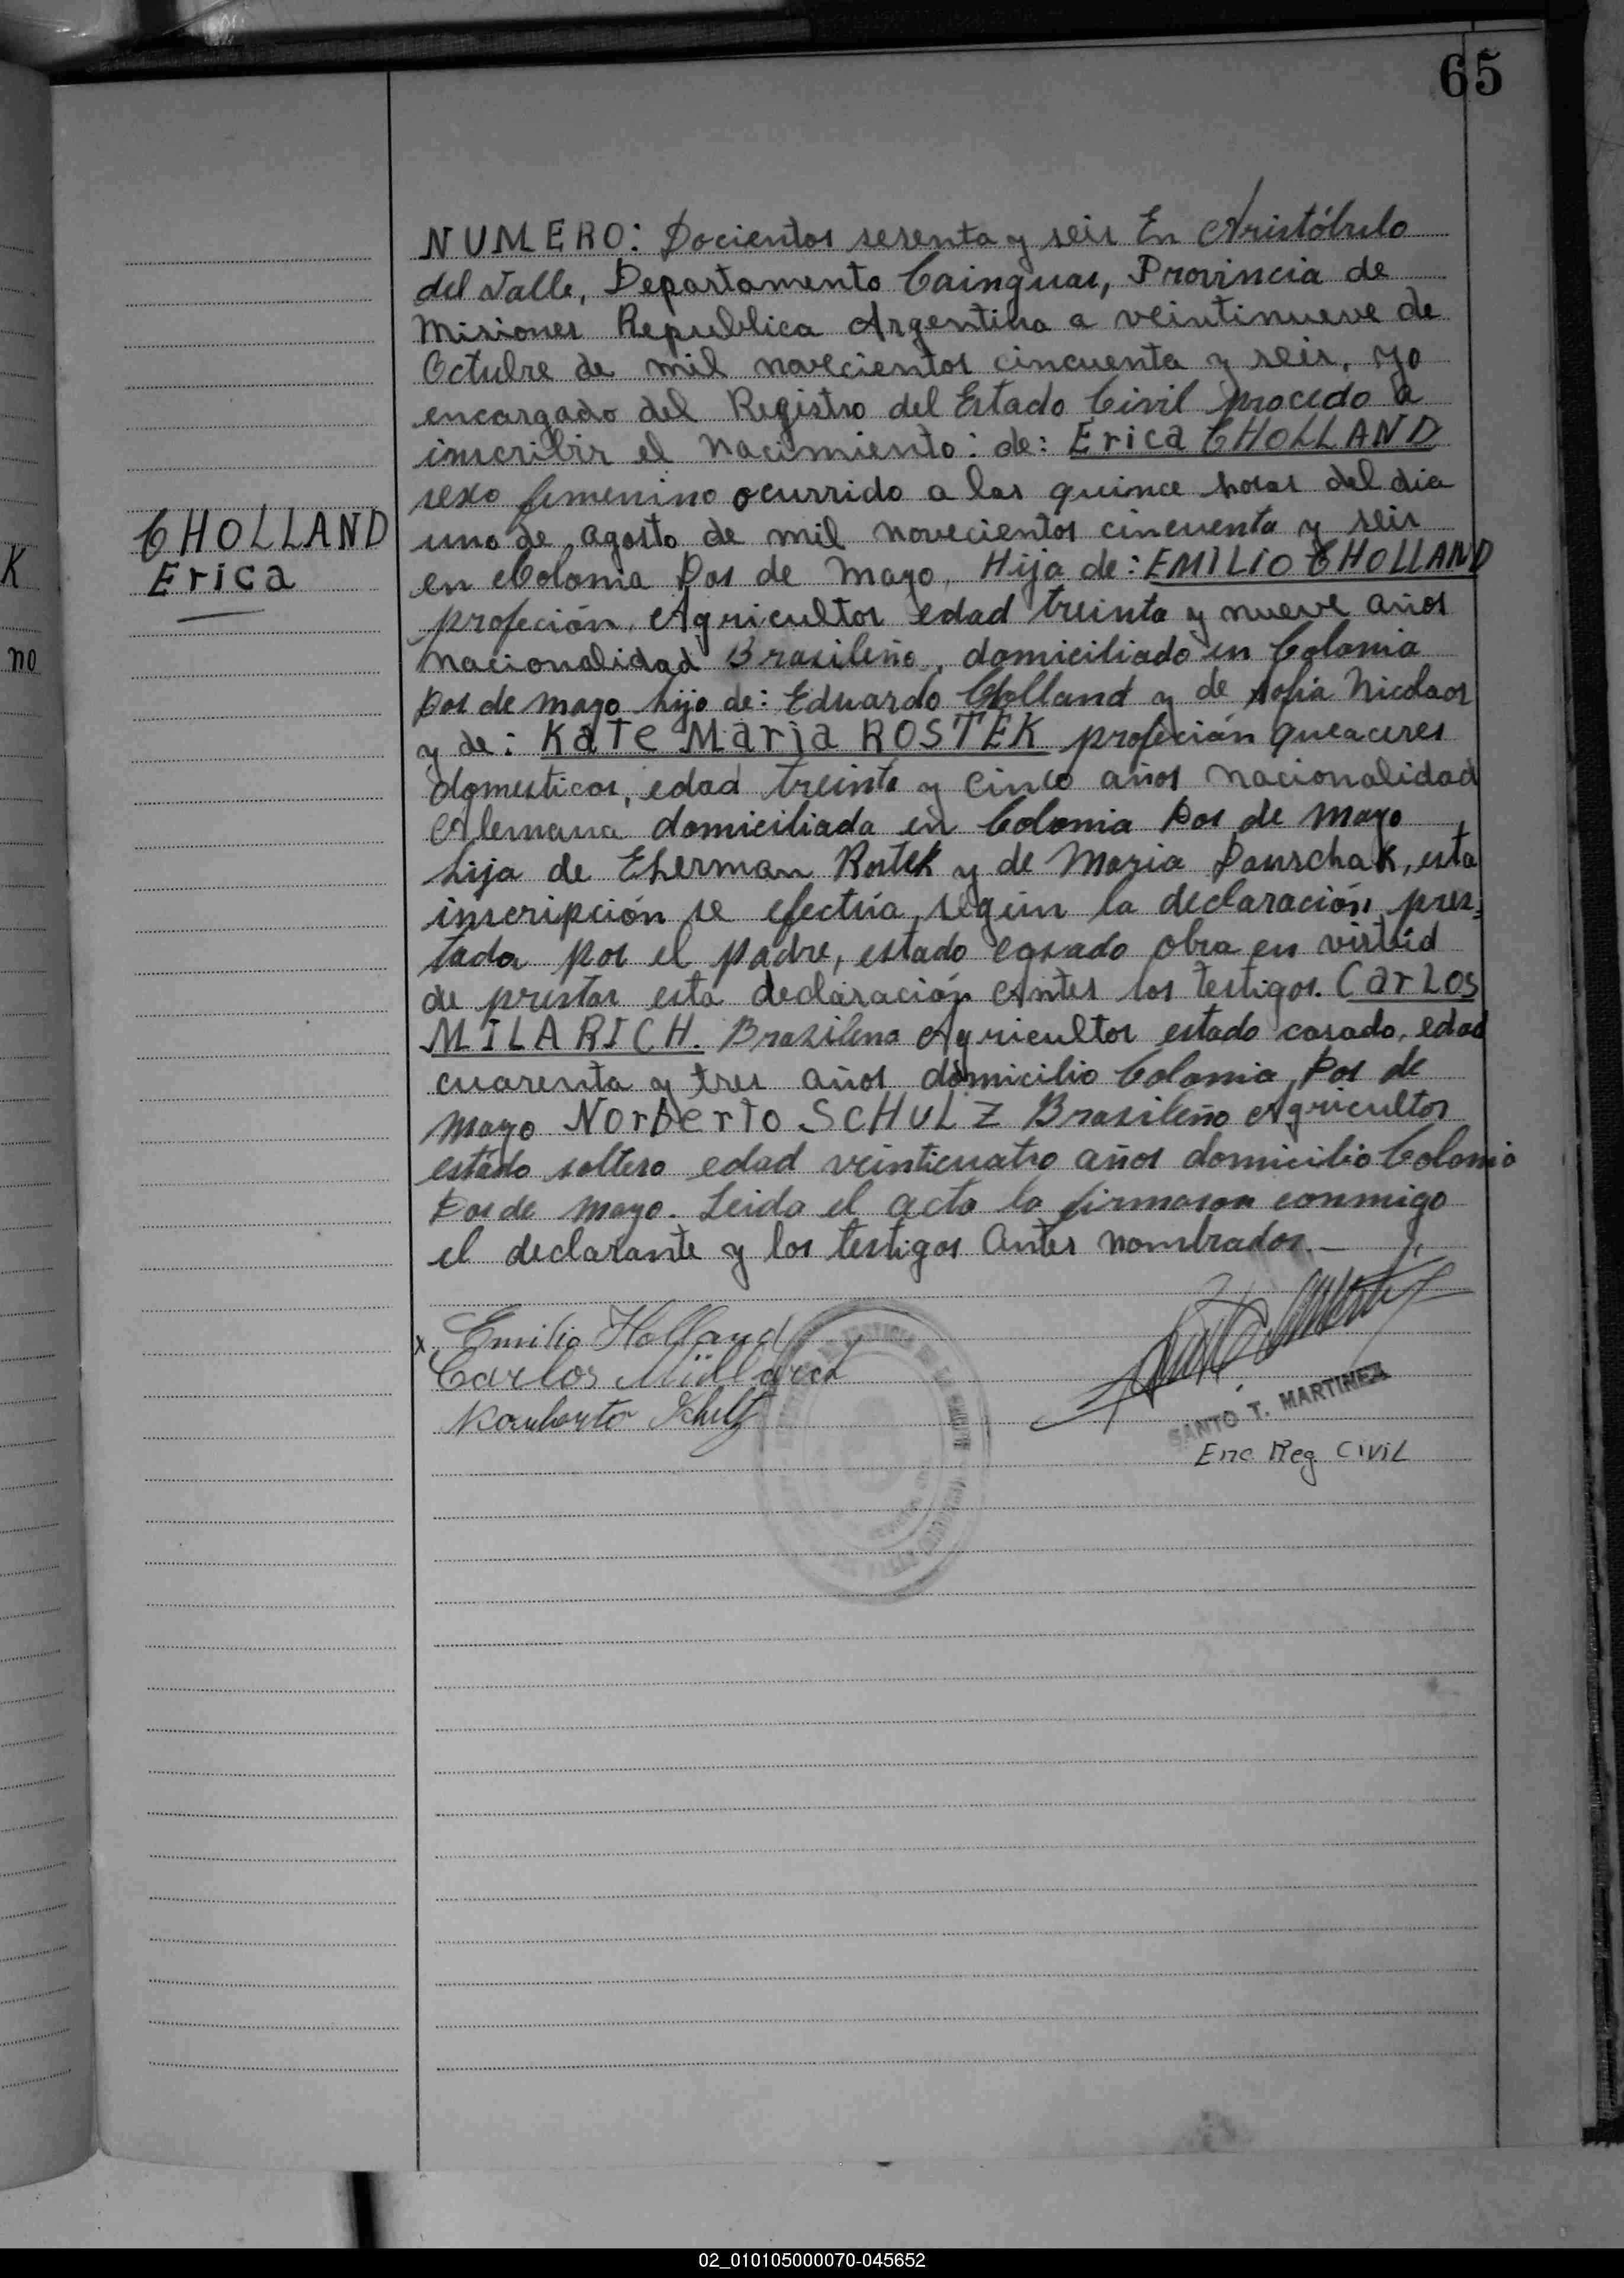 65
NUMERO: Docientos sesenta y seis En Aristóbulo
del Valle, Departamento Cainguas, Provincia de
Misiones Republica Argentina a veintinueve de
Octubre de mil novecientos cincuenta y seis, yo
encargado del Registro del Estado Civil procedo a
inscribir el Nacimiento: de: Erica CHOLLAND
sexo femenino ocurrido a las quince horas del dia
uno de agosto de mil novecientos cincuenta y seis
CHOLLAND
Erica
K
no
en Colonia Dos de Mayo. Hija de: EMILIO CHOLLAND
profeción Agricultor edad treinta y nueve años
nacionalidad Brasileño, domiciliado en Colonia
Dos de mayo hijo de: Eduardo Cholland y de Sofia Nicolaos
y de: Kate Maria ROSTEK profeción queaceres
domesticos, edad treinta y cinco años nacionalidad
Alemana domiciliada en Colonia Dos de Mayo
hija de Eherman Rostek y de Maria Pauschak, esta
inscripción se efectúa según la declaración pres=
tada por el padre, estado casado obra en virtud
de prestar esta declaración Antes los testigos. CarLos
MILARICH. Brasileno Agricultor estado casado, edad
cuarenta y tres años domicilio Colonia Dos de
mayo Norberto SCHULZ Brasileño Agricultor
estado soltero edad veinticuatro años domicilio Colonia
Dos de Mayo. Leida el acta la firmaron conmigo
el declarante y los testigos antes nombrados.—
x. Emilio Holland
Carlos
SANTO T. MARTINEZ
Enc. Reg. CiviL
02_010105000070-045652